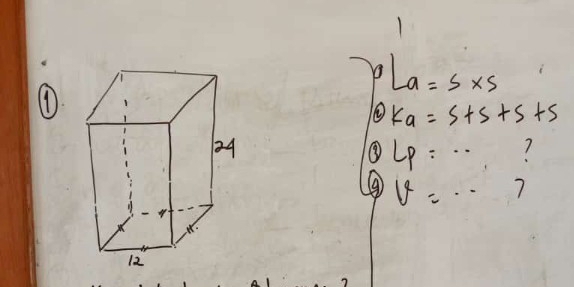 ①
24
12
① La = s x s
② Ka = s+s+s+s
③ Lp = .. ?
④ V = .. ?